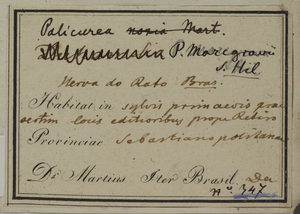 Palicurea noxia Mart.
P. Marcgravii
S. Hil
Herva do Rato Bras.
Habitat in sylvis primaevis prae
sertim locis editioribus prope Retiro
Provinciae Sebastianopolitanae
Dr. Martius Iter Brasil.
No. 347